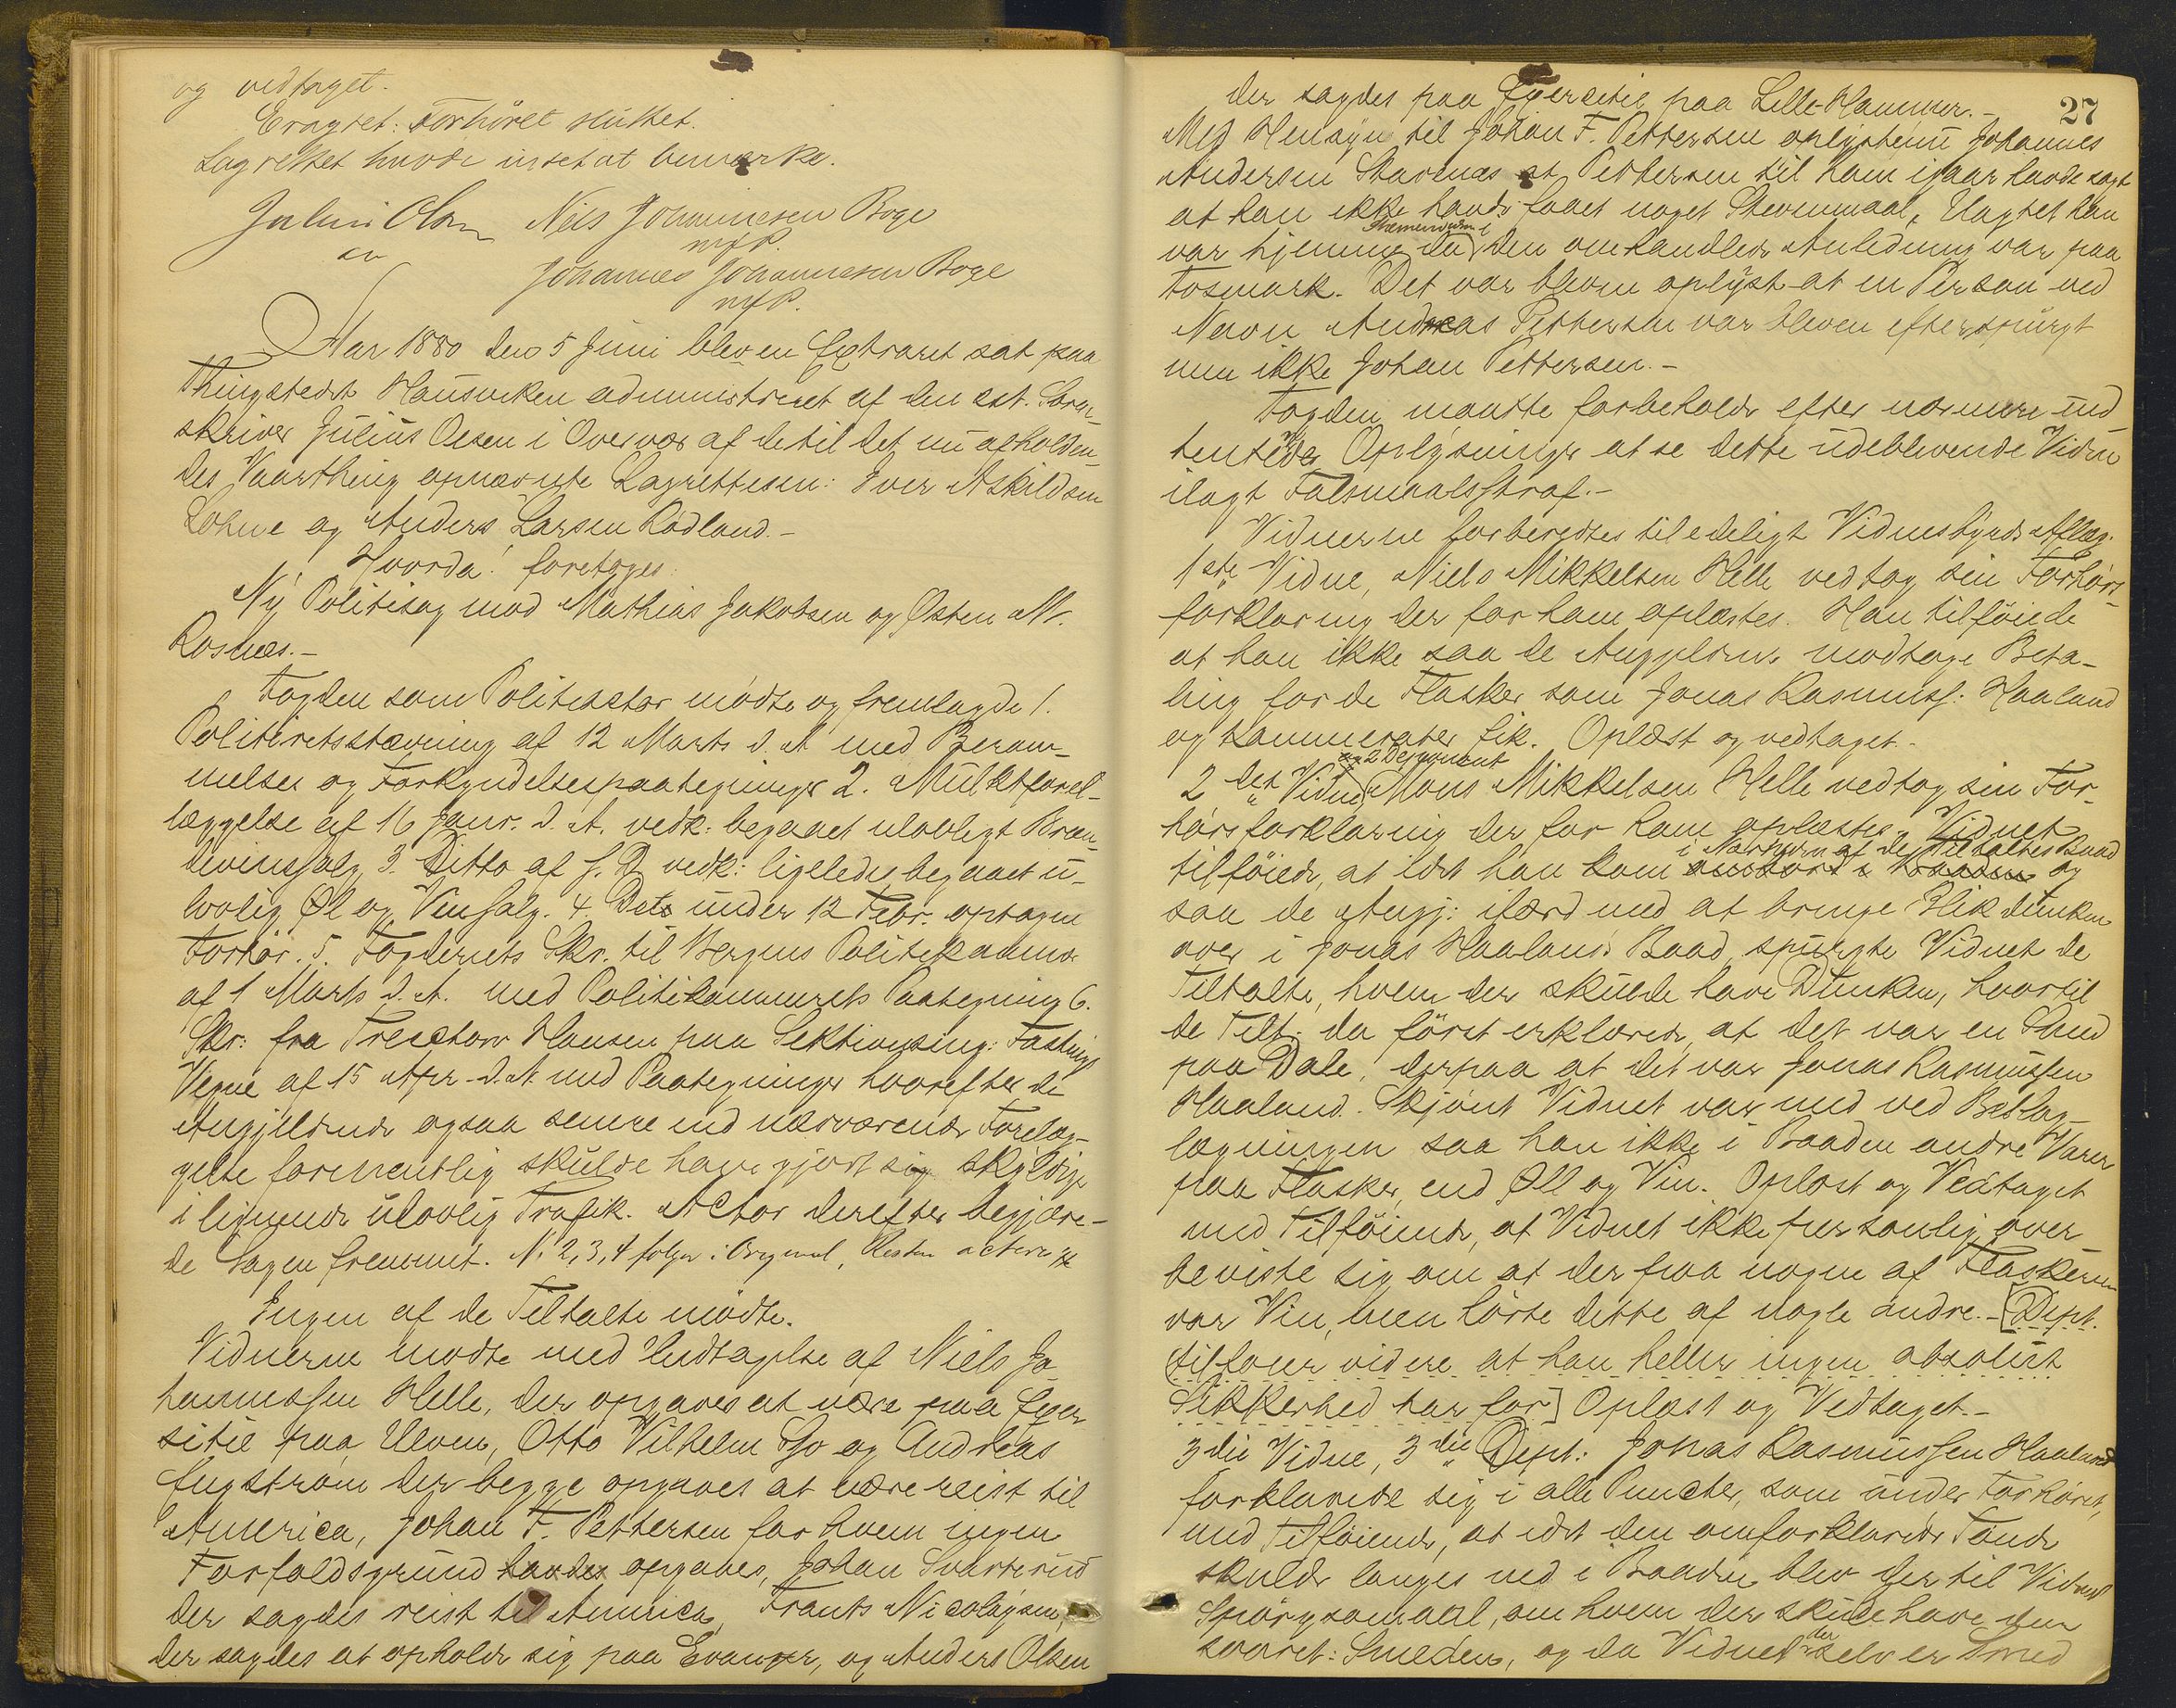 og vedtaget.
Eragtet: Forhöret sluttet.
Lagrettet havde intet at bemærke.
Julius Olsen Nils Johannesen Boge
cn mfP.
Johannes Johannesen Boge
mfP.
Aar 1880 den 5 Juni blev en Extraret sat paa
Thingstedet Hausviken administreret af den cst. Soren-
skriver Julius Olsen i Overvær af de til det nu afholden-
des Vaarthing opnævnte Lagrettesm: Iver Askildsen
Lohne og Anders Larsen Rödland.-
Hvorda! foretoges:
Ny Politisag mod Mathias Jakobsen og Østen M.
Rosnæs.-
Fogden som Politiactor mödte og fremlagde 1.
Politiretsstævning af 12 Marts d. A med Beram-
melses og Forkyndelsespaategninger 2. Mulktforel-
læggelse af 16 Janr. d. A. vedk: begaaet ulovligt Bræn-
devinssalg 3. Ditto af s. D vedk: ligeledes begaaet u-
lovlig Øl og Vinsalg. 4. Det under 12 Febr. optagne
Forhör. 5. Fogderiets Skr. til Bergens Politikammer
af 1 Marts d. A. med Politikammerets Paategning 6.
Skr: fra Treschow Hansen paa Fastings
Vegne af 15 Apr. d. A. med Paategninger hvorefter de
Angjeldende ogsaa senere end nærværende Forelæg-
gelse formentlig skulde have gjort sig skyldige
i lignende ulovlig Trafik. Actor derefter begjære-
de Sagen fremmet. No 2, 3, 4 følger i Original, Resten acteres
Ingen af de Tiltalte mödte.
Vidnerne mödte med Undtagelse af Niels Jo-
hannessen Helle, der opgaves at være paa Exer
sitie paa Ulven, Otto Vilhelm og Andreas
Engström der begge opgaves at være reist til
America, Johan F. Pettersen for hvem ingen
Forfaldsgrund havdes opgaves, Johan Svarterud
der sagdes reist til America, Frants Nicolaysen,
der sagdes at opholde sig paa Evanger, og Anders Olsen
27
der sagdes paa Exercitie paa Lille-Hammer.-
Med Hensyn til Johan F. Pettersen oplystenu Johannes
Andersen Stavenæs at Pettersen til ham igaar havde sagt
at han ikke havde faaet noget Stevnemaal, Uagtet han
Stævnevidnerne i
var hjemme da den omhandlede Anledning var paa
Fosmark. Det var bleven oplyst at en Person ved
Navn Andreas Pettersen var bleven efterspurgt
men ikke Johan Pettersen.-
Fogden maatte forbeholde efter nærmere ind-
hentede Oplysninger at se dette udeblevende Vidne
ilagt Falsmaalsstraf.-
Vidnerne forberedtes til edeligt Vidnesbyrds Aflæg.
1ste Vidne, Niels Mikkelsen Helle vedtog sin Forhörs-
forklaring der for ham oplæstes. Han tilföiede
at han ikke saa de Angjeldende modtage Beta-
ling for de Flasker som Jonas Rasmuss: Haaland
og Kammerater fik. Oplæst og vedtaget.-
og 2 Deponent
2det Vidne Mons Mikkelsen Helle vedtog sin For-
hörsforklaring der for ham oplæstes. Vidnet
i Nærheden af de Tiltaltes Baad
tilföiede, at idet han kom ombord i Baaden og
saa de Angj: ifærd med at bringe Blikdunken
over i Jonas Haalands Baad, spurgte Vidnet de
Tiltalte, hvem der skulde have Dunken, hvortil
de Tilt. da först erklærede, at det var en Smed
paa Dale, derpaa at det var Jonas Rasmussen
Haaland. Skjönt Vidnet var med ved Beslag-
lægningen saa han ikke i Baaden andre Varer
paa Flasker, end Øll og Vin. Oplæst og Vedtaget
med Tilföiende, at Vidnet ikke personlig over-
beviste sig om at der paa nogen af Flaskerne
var Vin, men hörte dette af nogle andre.- [Dept.
tilföier videre at han heller ingen absolut
Sikkerhed har for] Oplæst og Vedtaget.-
3die Vidne, 3die Dept: Jonas Rasmussen Haaland
forklarede sig i alle Puncter, som under Forhöret,
med Tilföiende, at idet den omforklarede Tönde
skulde langes ned i Baaden blev der til Vidnets
Spörgsmaal, om hvem der skulde have den
svaret: Smeden, og da Vidnet der selv er Smed